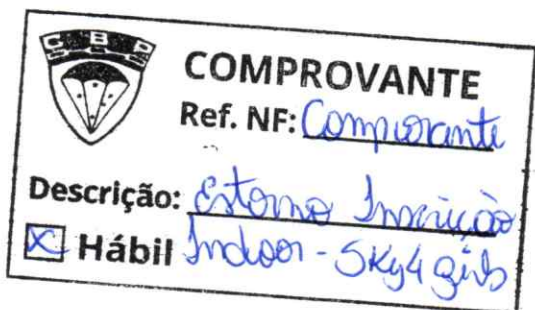 CBP
COMPROVANTE
Ref. NF: Comprovante
Descrição: Estorno Inscrição
☒ Hábil Indoor - Sky4 girls